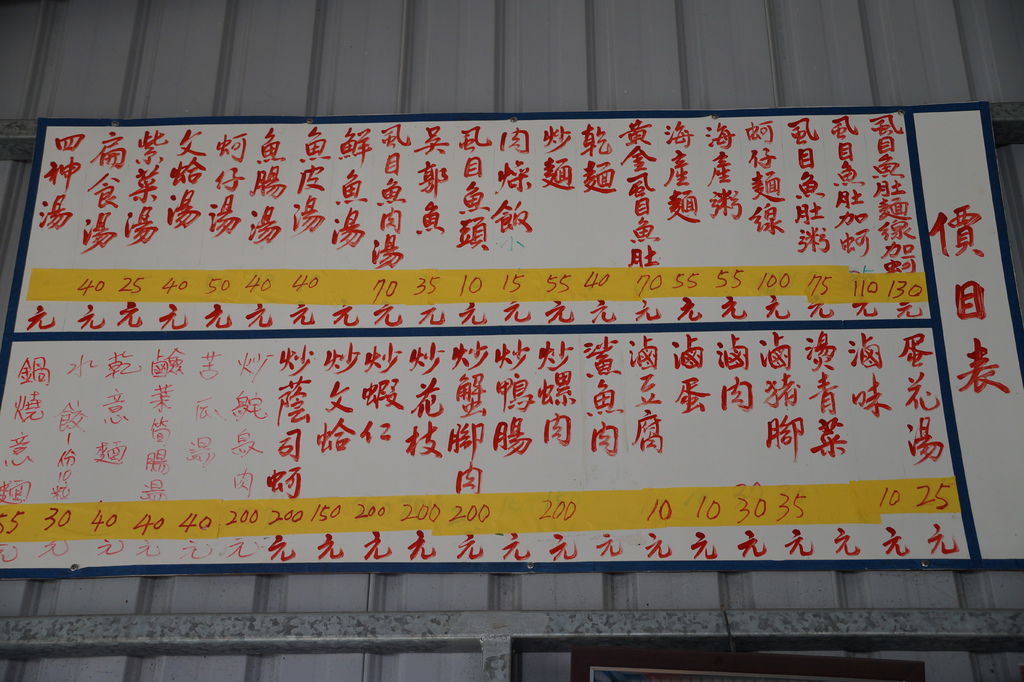 價目表
虱目魚肚麵線加蚵 130元
虱目魚肚加蚵 110元
虱目魚肚粥 75元
蚵仔麵線 100元
海產粥 55元
海產麵 55元
黃金虱目魚肚 70元
乾麵 40元
炒麵 55元
肉燥飯小 15元
虱目魚頭 10元
吳郭魚 35元
虱目魚肉湯 70元
鮮魚湯 元
魚皮湯 40元
魚腸湯 40元
蚵仔湯 50元
文蛤湯 40元
紫菜湯 25元
扁食湯 40元
四神湯 元
蛋花湯 25元
滷味 10元
燙青菜 元
滷猪腳 35元
滷肉 30元
滷蛋 10元
滷豆腐 10元
鯊魚肉 元
炒螺肉 200元
炒鴨腸 元
炒蟹腳肉 200元
炒花枝 200元
炒蝦仁 200元
炒文蛤 150元
炒蔭司蚵 200元
炒魚肉 200元
苦瓜湯 40元
鹹菜簡腸湯 40元
乾意麵 40元
水餃一份10粒 30元
鍋燒意麵 55元